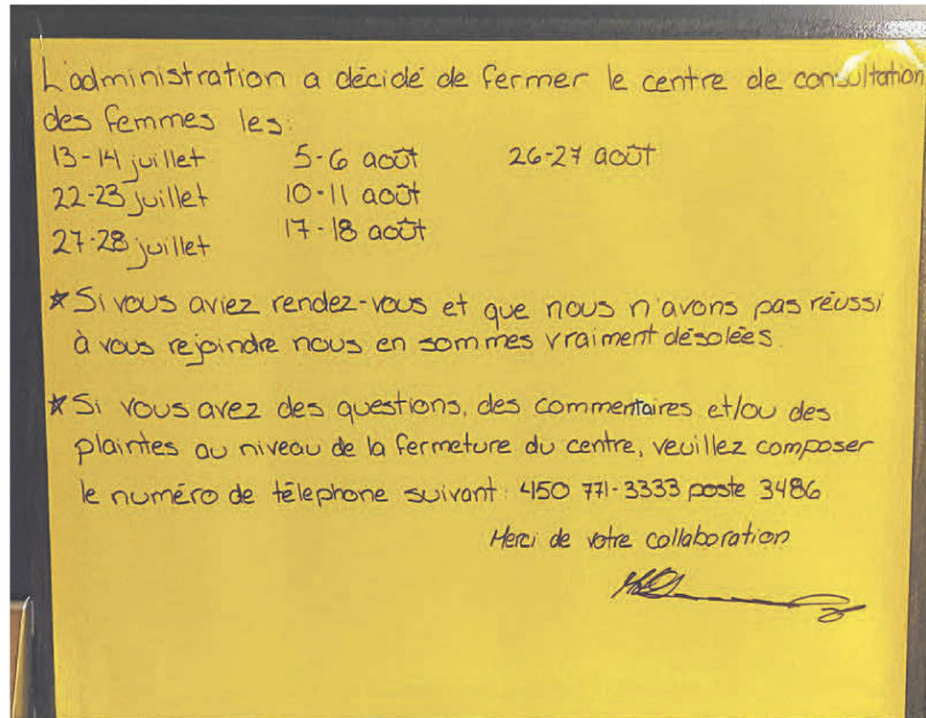 L'administration a décidé de fermer le centre de consultation
des femmes les:
13-14 juillet 5-6 août 26-27 août
22-23 juillet 10-11 août
27-28 juillet 17-18 août
* Si vous aviez rendez-vous et que nous n'avons pas réussi
à vous rejoindre nous en sommes vraiment désolées.
* Si vous avez des questions, des commentaires et/ou des
plaintes au niveau de la fermeture du centre, veuillez composer
le numéro de télephone suivant: 450 771-3333 poste 3486
Merci de votre collaboration